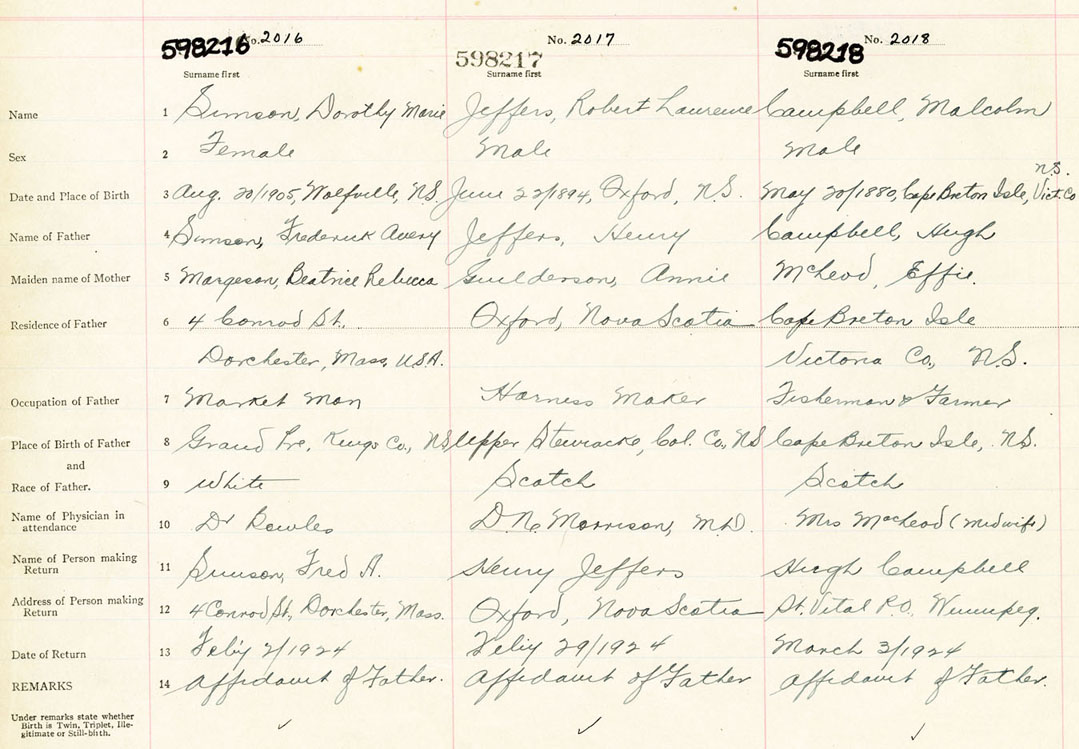 598216 No. 2016 598217 No. 2017 598218 No. 2018
Surname first Surname first Surname first
Name 1 Simson, Dorothy Marie Jeffers, Robert Laurence Campbell, Malcolm
Sex 2 Female Male Male
N.S.
Date and Place of Birth 3 Aug. 20/1905, Wolfville, N.S. June 22/1894, Oxford, N.S May 20/1880, Cape Breton Isle, Vict. Co
Name of Father 4 Simson, Frederick Avery Jeffers, Henry Campbell, Hugh
Maiden name of Mother 5 Margeson, Beatrice Rebecca Guilderson, Annie McLeod, Effie.
Residence of Father 6 4 Conrod St., Oxford, Nova Scotia Cape Breton Isle
Dorchester, Mass, U.S.A. Victoria Co., N.S.
Occupation of Father 7 Market Man Harness Maker Fisherman & Farmer
Place of Birth of Father 8 Grand Pre, Kings Co., N.S Upper Stewiacke, Col. Co, NS Cape Breton Isle, N.S.
and
Race of Father. 9 White Scotch Scotch
Name of Physician in
attendance 10 Dr Bowles D. N. Morrison, M.D. Mrs MacLeod (Midwife)
Name of Person making
Return 11 Simson, Fred A. Henry Jeffers Hugh Campbell
Address of Person making
Return 12 4 Conrod St., Dorchester, Mass. Oxford, Nova Scotia St. Vital P.O. Winnipeg.
Date of Return 13 Feb'y 2/1924 Feb'y 29/1924 March 3/1924
REMARKS 14 Affidavit of Father. Affidavit of Father Affidavit of Father.
Under remarks state whether
Birth is Twin, Triplet, Ille-
gitimate or Still-birth.